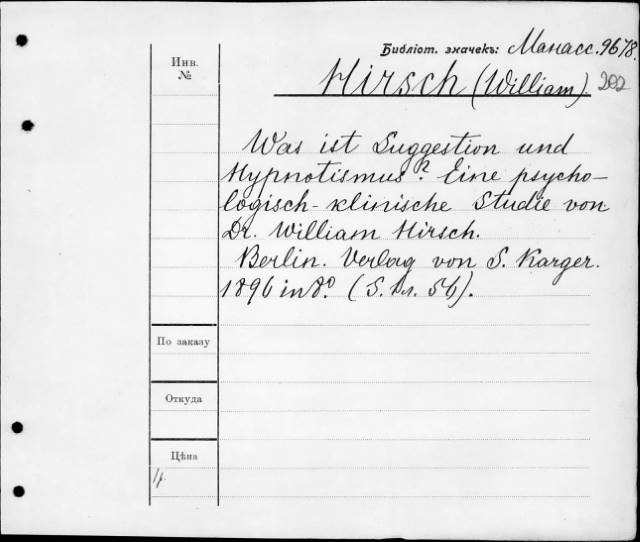 Библіот. значекъ: Манасс. 9678.
Инв.
№
Hirsch (William). 202
Was ist Suggestion und
Hypnotismus? Eine psycho-
logisch-klinische Studie von
Dr. William Hirsch.
Berlin. Verlag von S. Karger.
1896 in 8.º (S. 56).
По заказу
Откуда
Цѣна